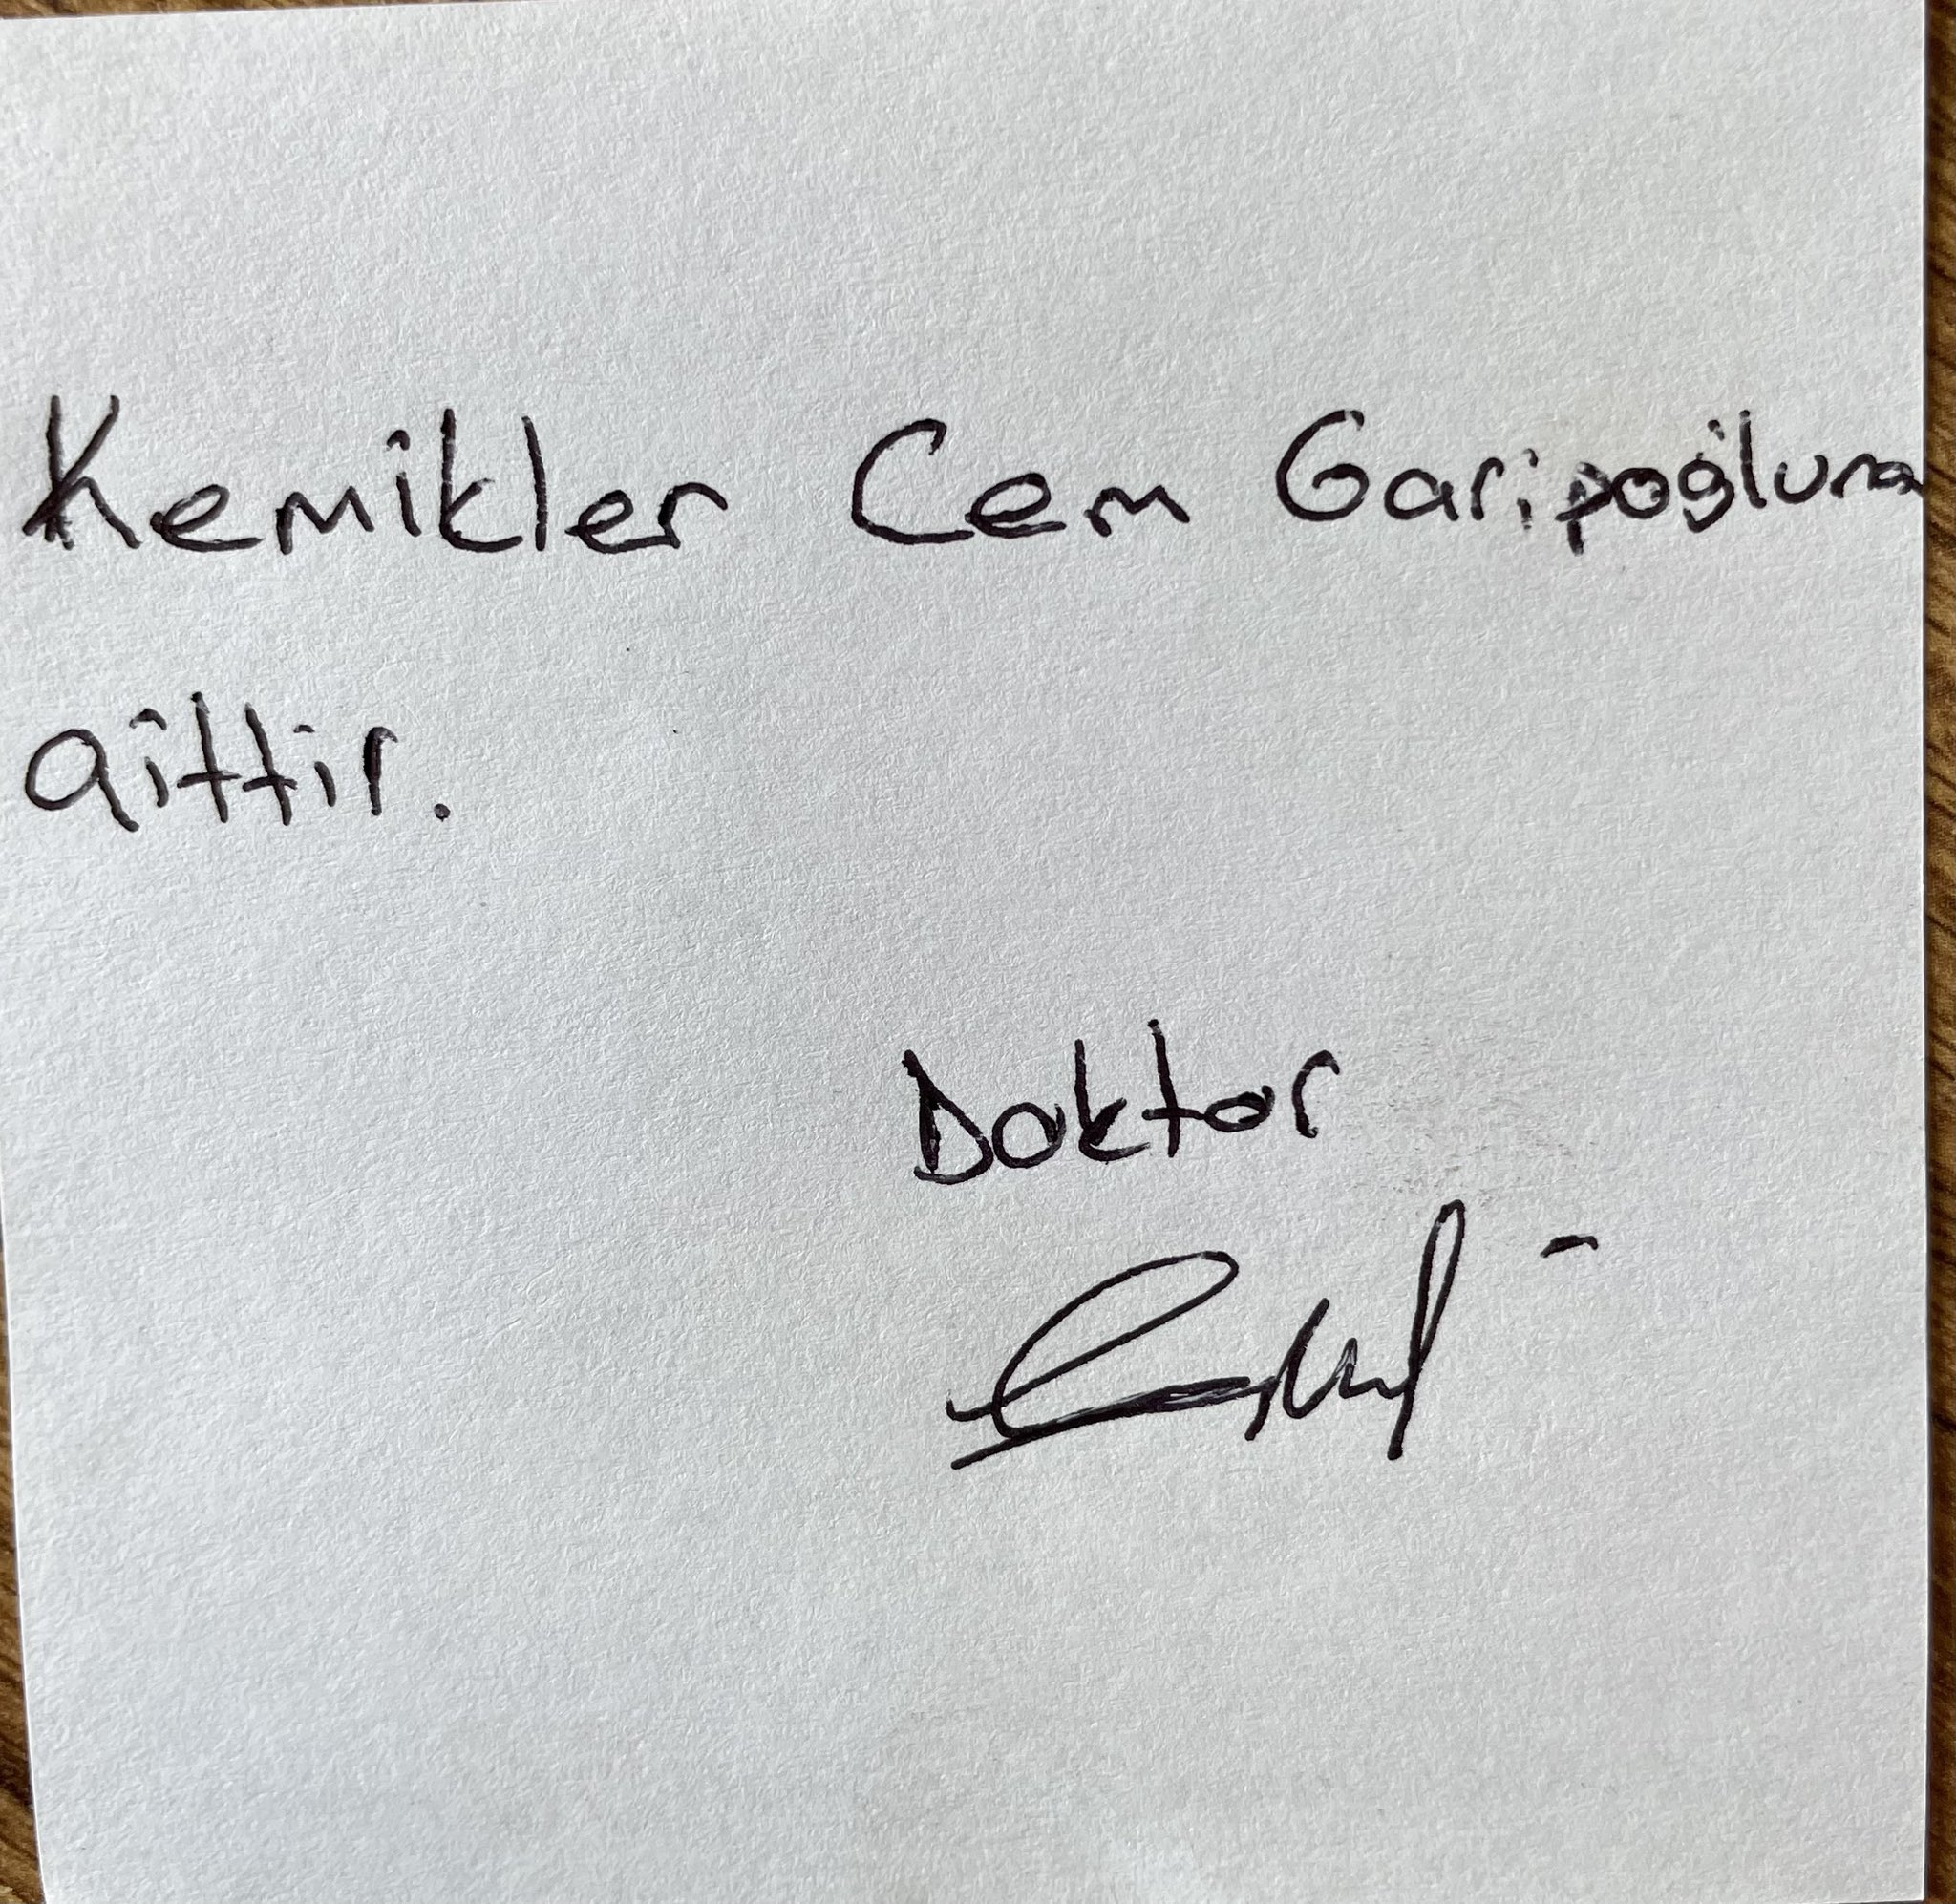 Kemikler Cem Garipoğluna
aittir.
Doktor